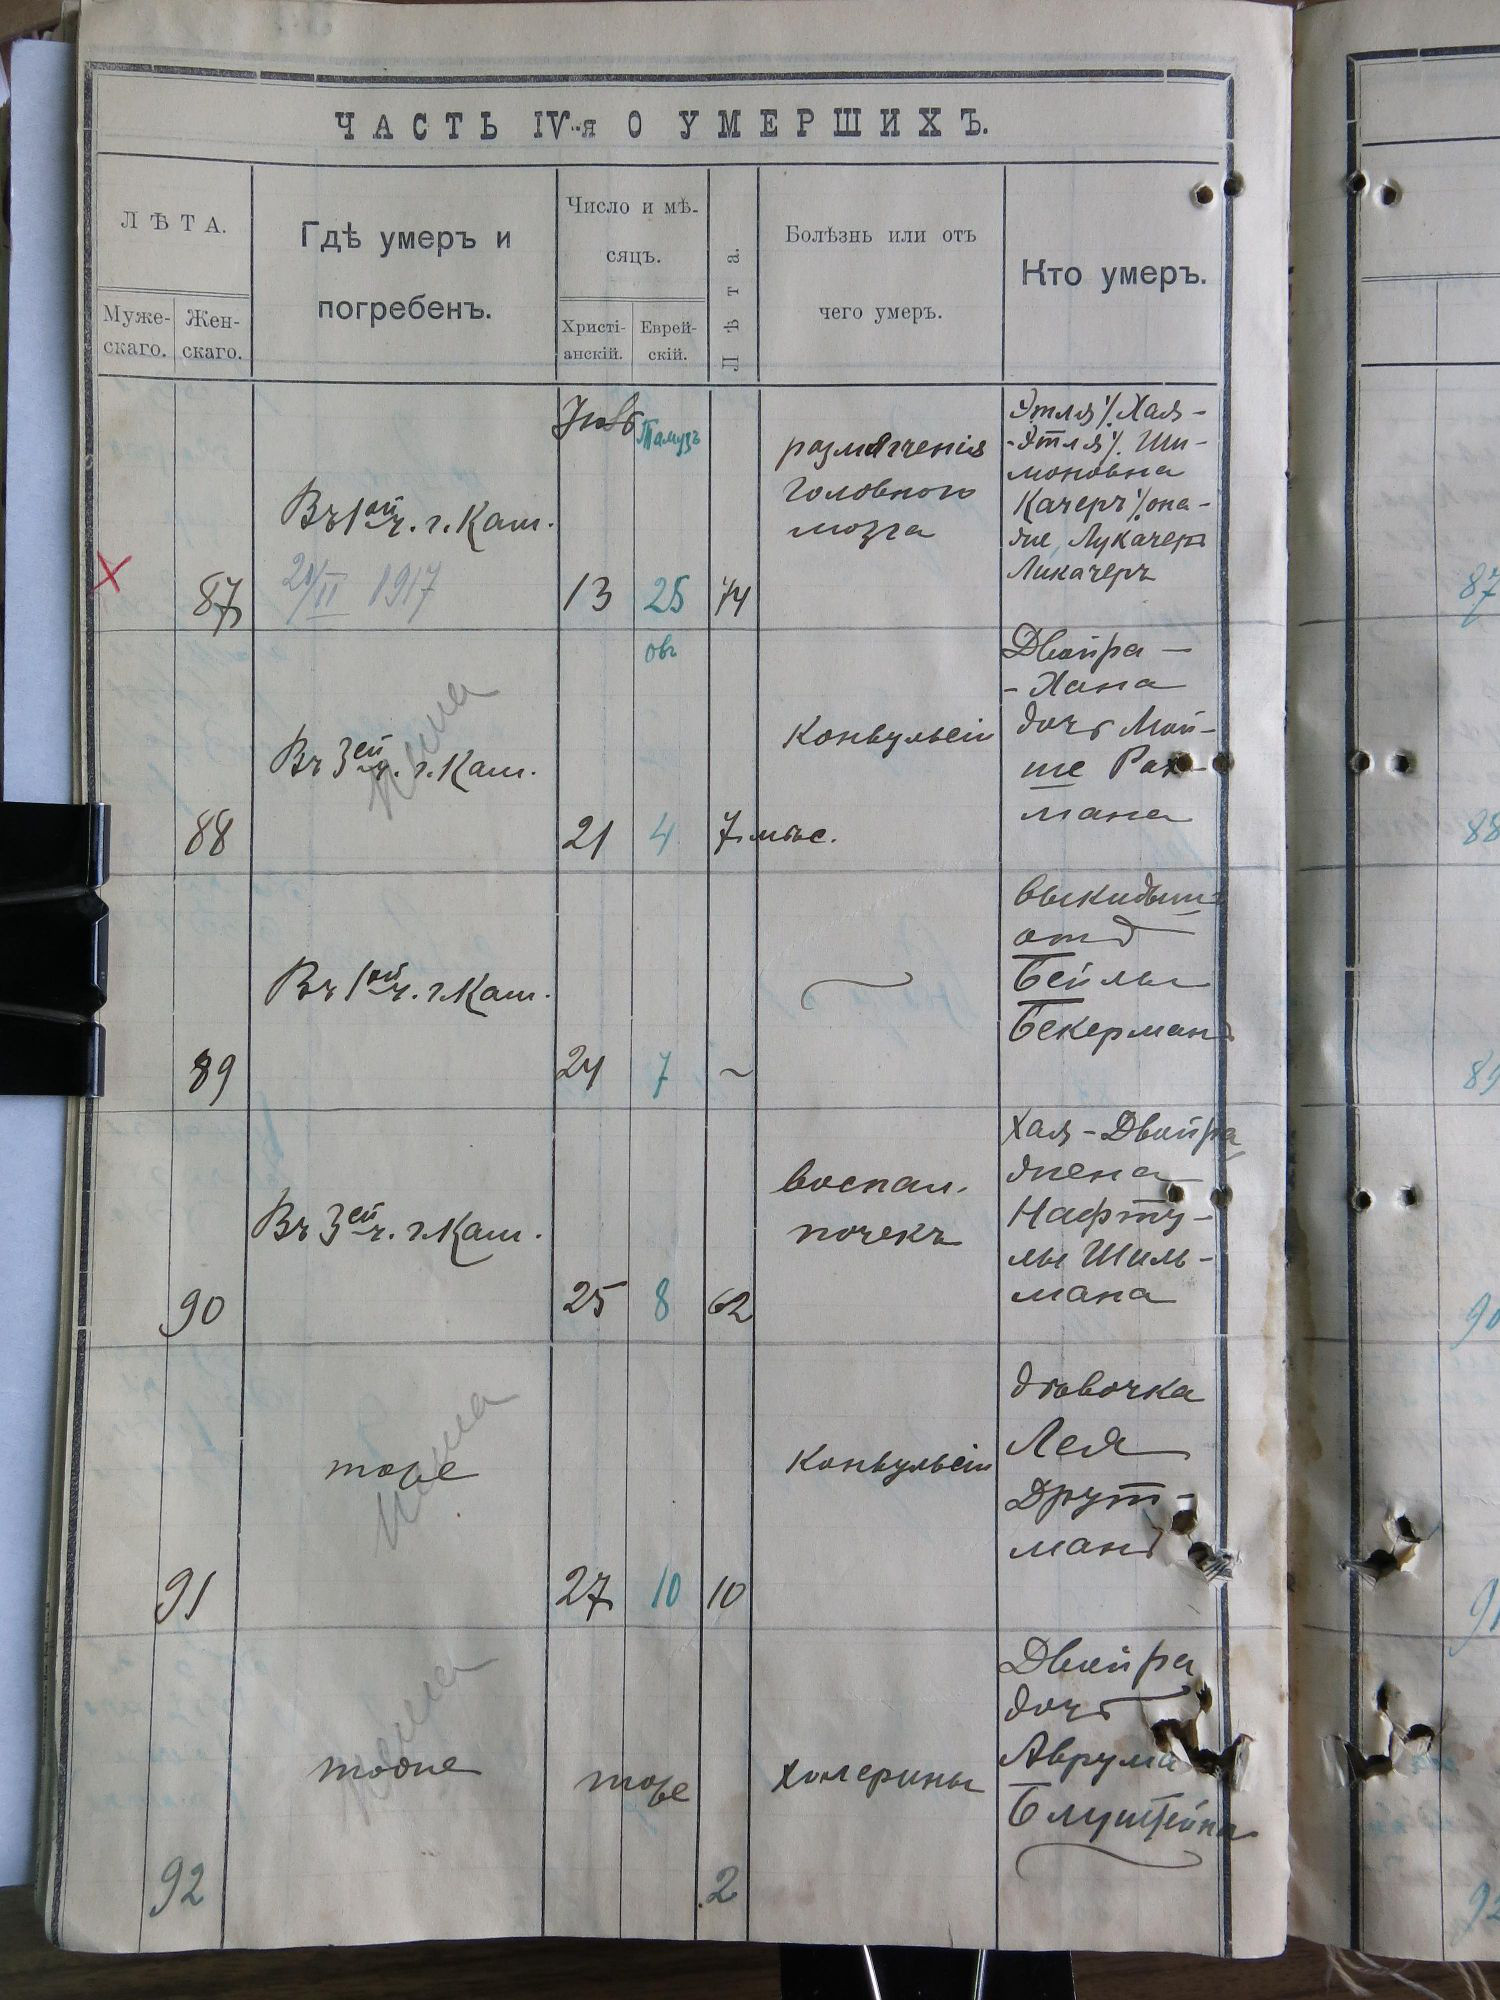 ЧАСТЬ IV-я О УМЕРШИХЪ.
ЛѢТА.
Муже-
скаго.
Жен-
скаго.
Гдѣ умеръ и
погребенъ.
Число и мѣ-
сяцъ.
Христі-
анскій.
Еврей-
скій.
Лѣта.
Болѣзнь или отъ
чего умеръ.
Кто умеръ.
87
Въ 1ой ч. г. Кам.
1917
13
Тамузъ
25
74
размягченія
головного
мозга
Этля ٪ Хая-
-Этля ٪ Ши-
моновна
Качеръ ٪ она-
же Лукачеръ
Ликачеръ
87
88
Въ 3ей ч. г. Кам.
21
овъ
4
7 мѣс.
Конвульсіи
Двойра -
- Хана
дочь Мой-
ше Рох-
мана
88
89
Въ 1ой ч. г. Кам.
24
7
~
выкидышъ
отъ
Бейлы
Бекерманъ
89
90
Въ 3ей ч. г. Кам.
25
8
62
воспал.
почекъ
Хая - Двойра
жена
Нафту-
лы Шиль-
мана
90
91
тоже
27
10
10
Конвульсіи
дѣвочка
Лея
Друт-
манъ
91
92
тоже
тоже
2
холерины
Двойра
дочь
Аврума
Блуштейна
92